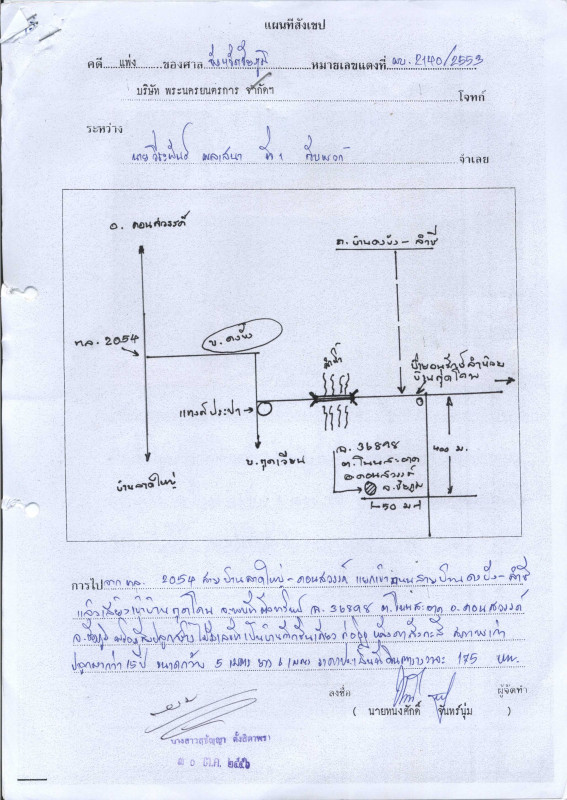 แผนที่สังเขป
คดี แพ่ง ของศาล จังหวัดชัยภูมิ หมายเลขแดงที่ ผบ. 2140/2553
บริษัท พระนครยนตรการ จำกัดฯ โจทก์
ระหว่าง
นาย พลเสนา ที่ 1 กับพวก จำเลย
อ. คอนสวรรค์
ถ. บ้านดงบัง – ลำชี
ทล. 2054
บ. ดงบัง
ลำน้ำ
บ้านกุดโดน
แทงค์ประปา
บ. กุดเวียน
บ้านลาดใหญ่
ฉ. 36898
ต. โนนสะอาด
อ. คอนสวรรค์
จ. ชัยภูมิ
400 ม.
50 ม.
การไป จาก ทล. 2054 สาย บ้านลาดใหญ่ – คอนสวรรค์ แยกเข้าถนนสายบ้านดงบัง – ลำชี
แล้วเลี้ยวเข้าบ้านกุดโดน จะพบที่ตั้งทรัพย์ ฉ. 36898 ต. โนนสะอาด อ. คอนสวรรค์
จ. ชัยภูมิ พร้อมสิ่งปลูกสร้าง เป็นบ้านตึกชั้นเดียว ก่ออิฐ หลังคาสังกะสี สภาพเก่า
ปลูกมากว่า 15 ปี ขนาดกว้าง 5 เมตร ยาว 6 เมตร ราคาประเมินที่ดินตารางวาละ 175 บาท.
ลงชื่อ ผู้จัดทำ
( นายทนงศักดิ์ จันทร์นุ่ม )
ต.ค. ๒๕๕๖